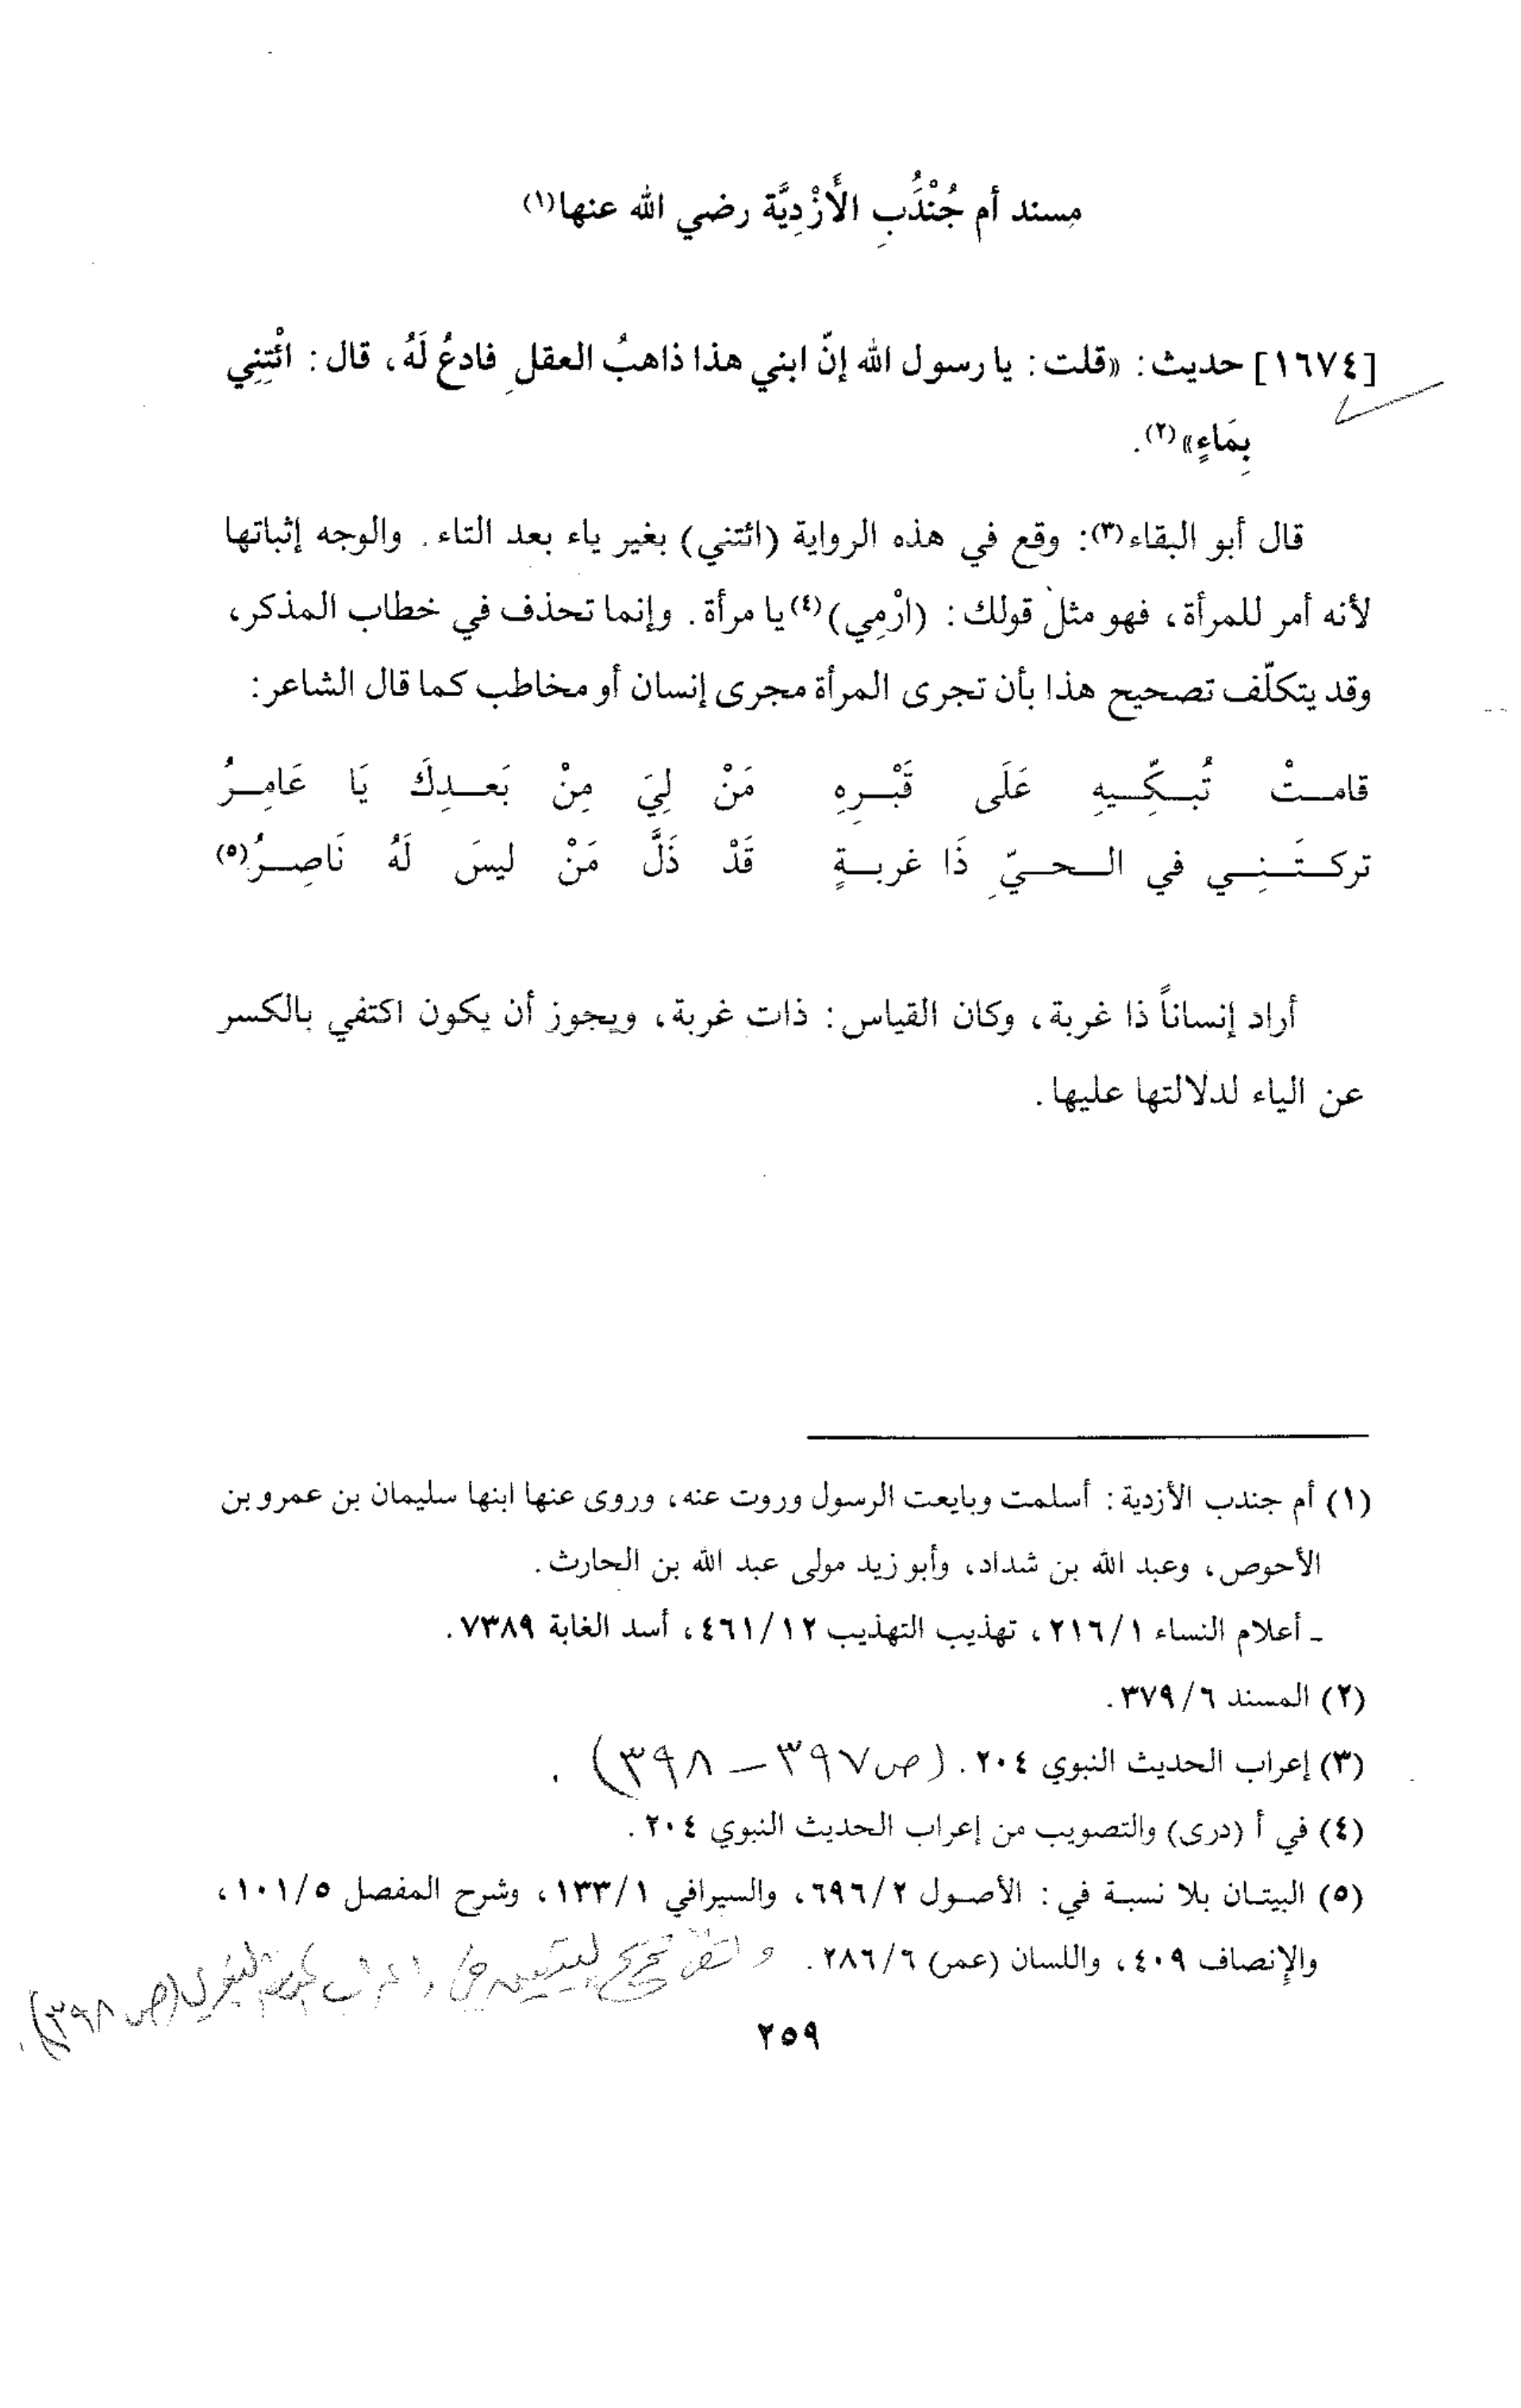 مسند أم جُنْدَُبِ الأَزْدِيَّة رضي الله عنها(١)
[١٦٧٤] حديث: «قلت: يا رسول الله إنّ ابني هذا ذاهبُ العقلِ فادعُ لَهُ، قال: ائْتِنِي
بِمَاءٍ»(٢).
قال أبو البقاء(٣): وقع في هذه الرواية (ائتني) بغير ياء بعد التاء. والوجه إثباتها
لأنه أمر للمرأة، فهو مثل قولك: (ارْمِي)(٤) يا مرأة. وإنما تحذف في خطاب المذكر،
وقد يتكلّف تصحيح هذا بأن تجرى المرأة مجرى إنسان أو مخاطب كما قال الشاعر:
قامــتْ تُبــكِّــيهِ عَلَى قَبْــرِهِ مَنْ لِيَ مِنْ بَعــدِكَ يَا عَامِــرُ
تركــتَــنِــي في الــحــيِّ ذَا غربــةٍ قَدْ ذَلَّ مَنْ ليسَ لَهُ نَاصِــرُ(٥)
أراد إنساناً ذا غربة، وكان القياس: ذات غربة، ويجوز أن يكون اكتفي بالكسر
عن الياء لدلالتها عليها.
(١) أم جندب الأزدية: أسلمت وبايعت الرسول وروت عنه، وروى عنها ابنها سليمان بن عمرو بن
الأحوص، وعبد الله بن شداد، وأبو زيد مولى عبد الله بن الحارث.
ـ أعلام النساء ٢١٦/١، تهذيب التهذيب ٤٦١/١٢، أسد الغابة ٧٣٨٩.
(٢) المسند ٣٧٩/٦.
(٣) إعراب الحديث النبوي ٢٠٤. (ص ٣٩٧ – ٣٩٨).
(٤) في أ (درى) والتصويب من إعراب الحديث النبوي ٢٠٤.
(٥) البيتــان بلا نسبــة في: الأصــول ٦٩٦/٢، والسيرافي ١٣٣/١، وشرح المفصل ١٠١/٥،
والإنصاف ٤٠٩، واللسان (عمر) ٢٨٦/٦. وانظر تخريج البيتين في إعراب الحديث النبوي (ص ٣٩٨).
٢٥٩